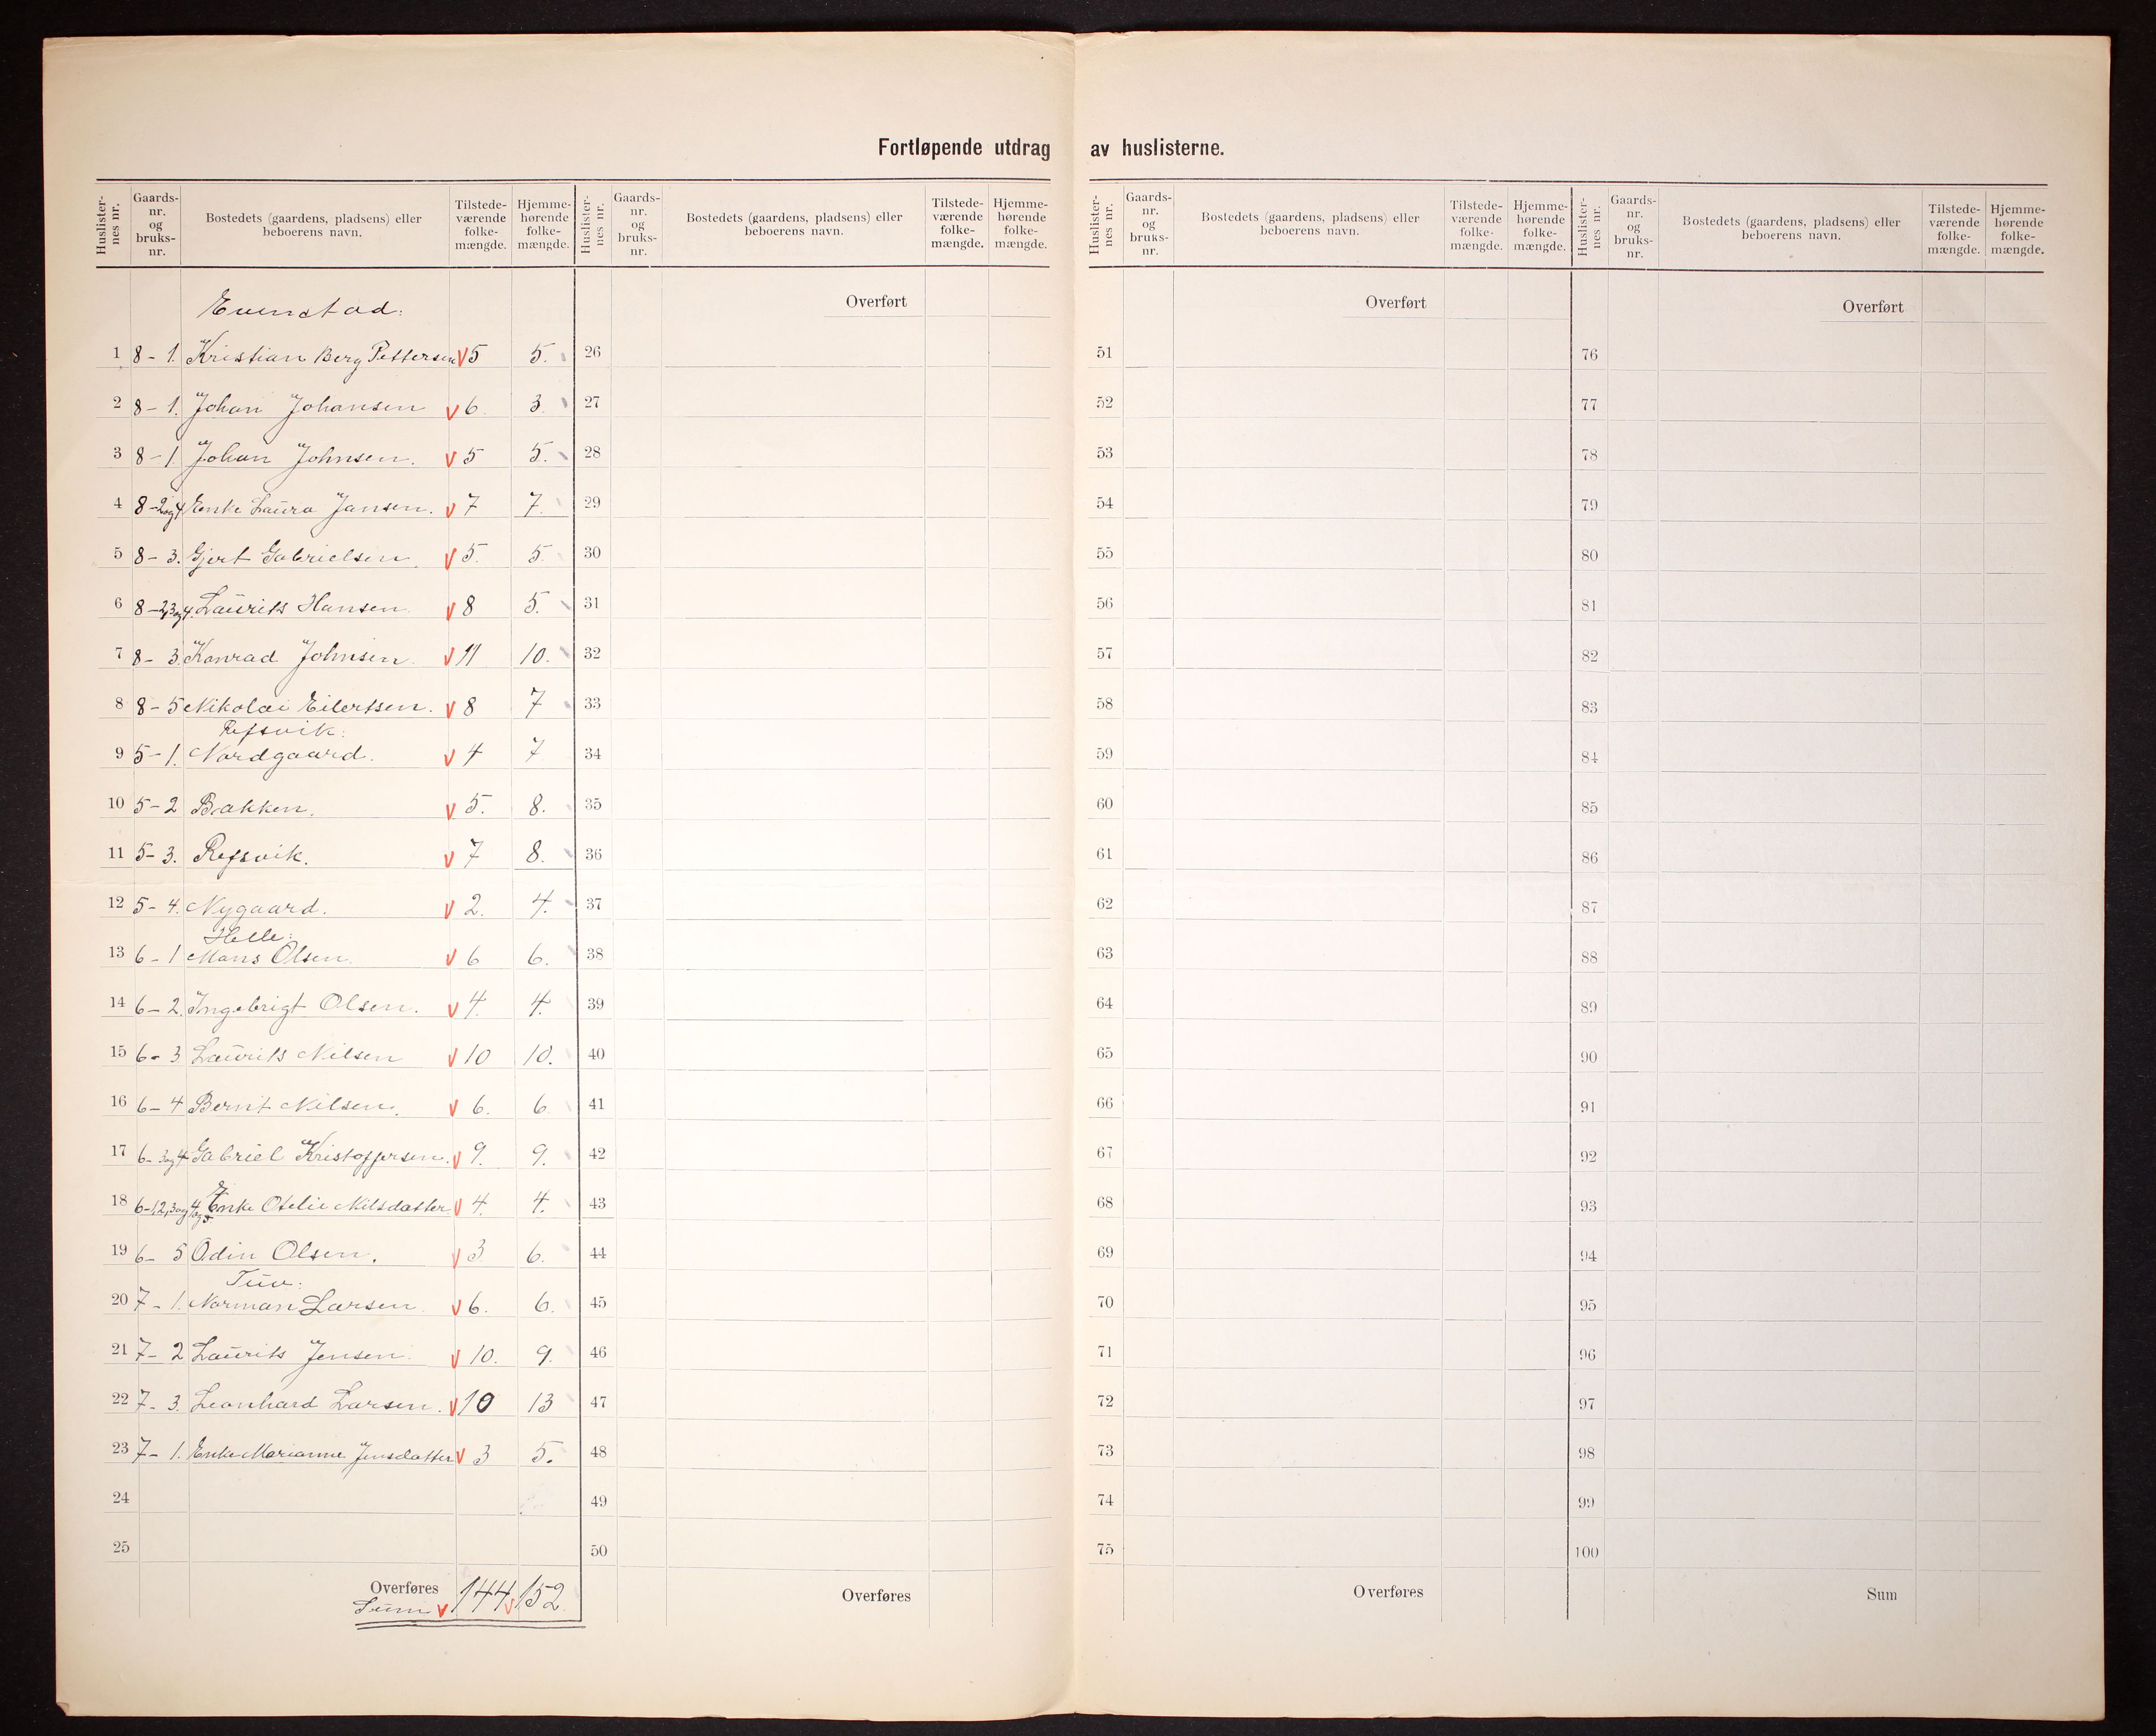 Fortløpende utdrag av huslisterne.
Huslisternes nr. Gaards-nr. og bruks-nr. Bostedets (gaardens, pladsens) eller beboerens navn. Tilstede-værende folke-mængde. Hjemme-hørende folke-mængde.
Evenstad:
1 8-1. Kristian Berg Pettersen V 5 5.
2 8-1. Johan Johansen V 6. 3.
3 8-1 Johan Johnsen. V 5 5.
4 8-2og4 Enke Laura Jansen. V 7 7.
5 8-3. Gjert Gabrielsen. V 5. 5
6 8-2,3og4. Laurits Hansen V 8 5.
7 8-3. Konrad Johnsen. V 11 10.
8 8-5 Nikolai Eilertsen. V 8 7
Refsvik:
9 5-1. Nordgaard. V 4 7
10 5-2 Bakken. V 5. 8.
11 5-3. Refsvik. V 7 8.
12 5-4. Nygaard. V 2. 4.
Helle:
13 6-1 Mons Olsen. V 6 6.
14 6-2. Ingebrigt Olsen. V 4. 4.
15 6-3 Laurits Nilsen V 10 10.
16 6-4 Bernt Nilsen. V 6. 6
17 6-3og4 Gabriel Kristoffersen. V 9. 9.
18 6-1,2,3og4 og5 Enke Otelie Nilsdatter V 4. 4.
19 6-5 Odin Olsen. V 3 6.
Tuv:
20 7-1. Norman Larsen. V 6. 6.
21 7-2 Laurits Jensen V 10. 9.
22 7-3. Leonhard Larsen. V 10 13
23 7-1. Enke Marianne Jensdatter V 3 5.
24
25
Overføres 144 152
Sum V V
Huslisternes nr. Gaards-nr. og bruks-nr. Bostedets (gaardens, pladsens) eller beboerens navn. Tilstede-værende folke-mængde. Hjemme-hørende folke-mængde.
Overført
26
27
28
29
30
31
32
33
34
35
36
37
38
39
40
41
42
43
44
45
46
47
48
49
50
Overføres
Huslisternes nr. Gaards-nr. og bruks-nr. Bostedets (gaardens, pladsens) eller beboerens navn. Tilstede-værende folke-mængde. Hjemme-hørende folke-mængde.
Overført
51
52
53
54
55
56
57
58
59
60
61
62
63
64
65
66
67
68
69
70
71
72
73
74
75
Overføres
Huslisternes nr. Gaards-nr. og bruks-nr. Bostedets (gaardens, pladsens) eller beboerens navn. Tilstede-værende folke-mængde. Hjemme-hørende folke-mængde.
Overført
76
77
78
79
80
81
82
83
84
85
86
87
88
89
90
91
92
93
94
95
96
97
98
99
100
Sum